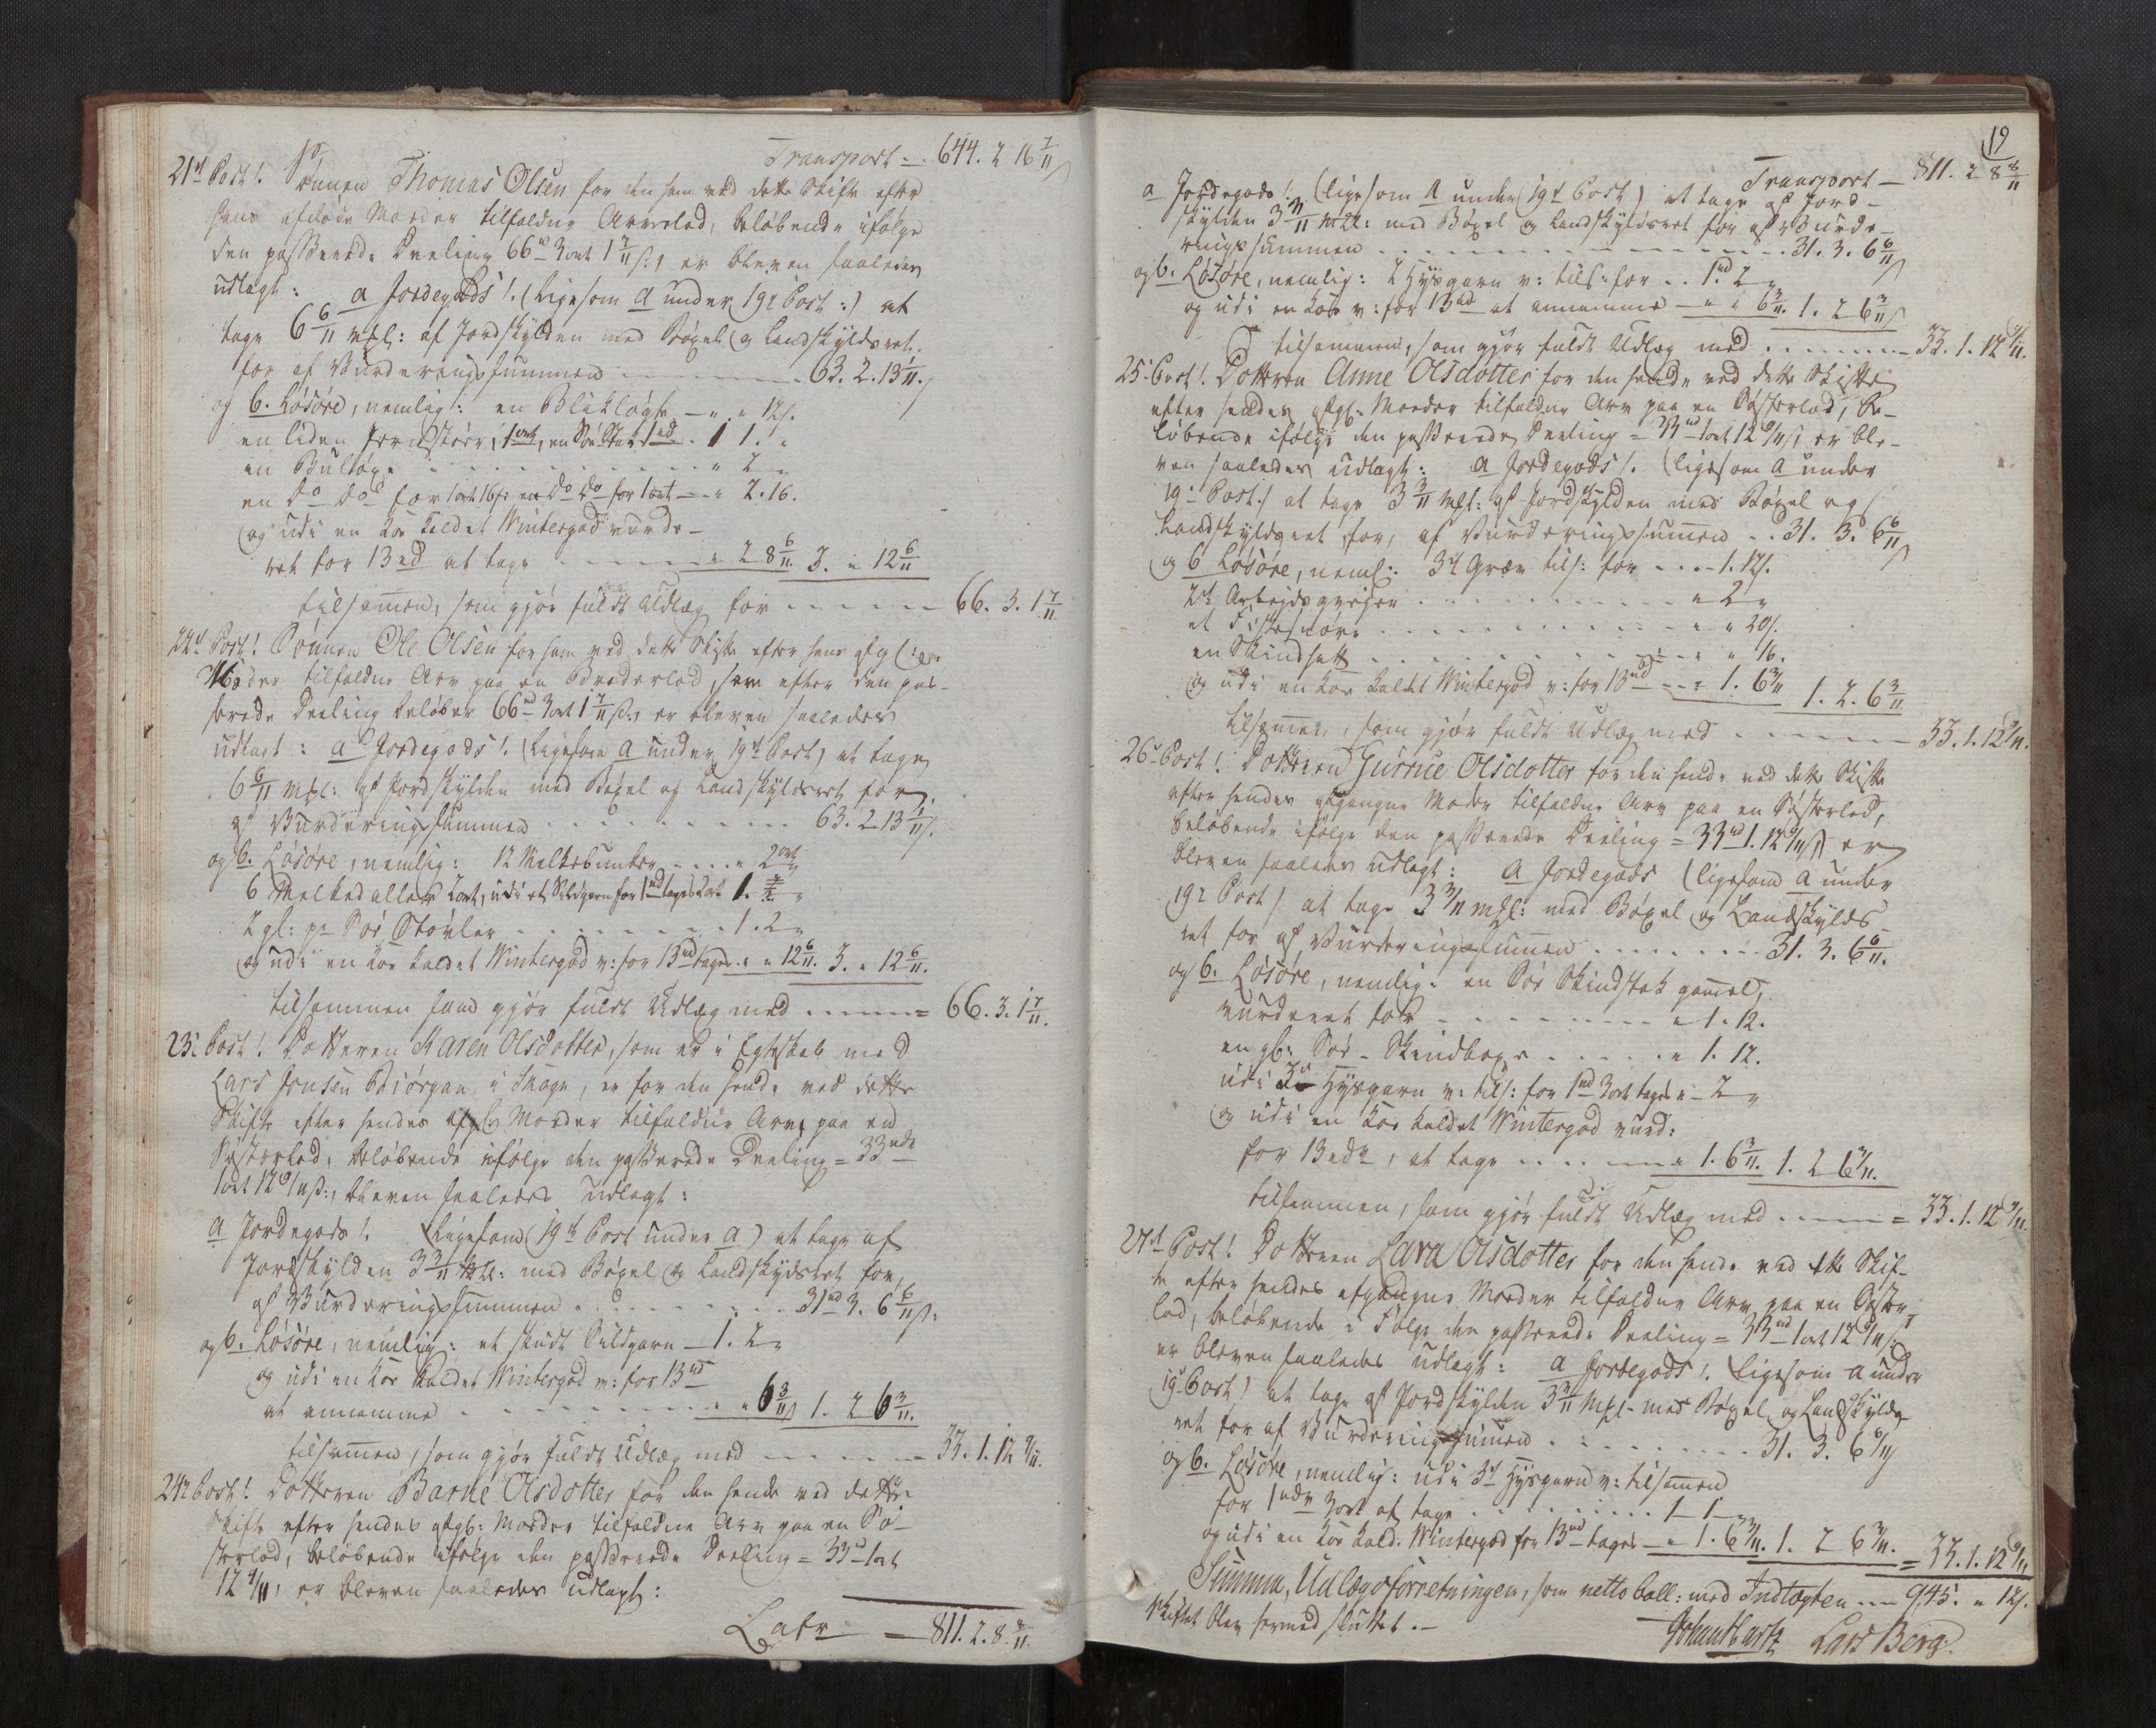 Transport — 644. 2 16 7/11 ß
21de Post!. Sönnen Thomas Olsen for den ham ved dette Skifte efter
hans afdöde Moder tilfaldne Arvelod, belöbende ifölge
den passerede Deeling 66 rd 3 ort 1 7/11 ß, er bleven saaledes
udlagt: a Jordegods!. (ligesom a under 19de Post:) at
tage 6 6/11 mkl: af Jordskylden med Böxel og Landskyldsret,
for af Vurderingssummen — 63. 2. 13 1/11 ß
og b. Lösöre, nemlig: en Bliklögte — " " 12 ß.
en liden Jernstöer, 1 ort, en Söe Stak 1 rd . 1 1. "
en Bulöxe . . . . " 2 "
en do do for 1 ort 16 ß: en do do for 1 ort — " 2. 16.
og udi en Koe kaldet Vintergod vurde-
ret for 13 rd at tage — " 2 8 6/11. 3. " 12 6/11
tilsamen, som gjör fuldt Udlæg for — 66. 3. 1 7/11
22de Post! Sönnen Ole Olsen for ham ved dette Skifte efter hans afg.
Moder tilfaldne Arv paa en Broderlod, som efter den pas-
serede Deeling belöber 66 rd 3 ort 1 7/11 ß., er bleven saaledes
udlagt: a Jordegods!. (ligesom a under 19de Post) at tage
6 6/11 mkl: af Jordskylden med Böxel og Landskyldsret for,
af Vurderingssummen . . . . 63. 2. 13 1/11 ß.
og b. Lösöre, nemlig: 12 Melkebunker . . . " 2 ort "
6 Melkedaller 2 ort, udi et Sildgarn for 1 rd tages 2 ort 1. "
2 gl: pr Söe Stövler . . . . 1. 2 "
og udi en Koe kaldet Vintergod v: for 13 rd tages " " 12 6/11. 3. " 12 6/11.
tilsammen som gjör fuldt Udlæg med — 66. 3. 1 7/11.
23de Post!. Dotteren Karen Olsdotter, som er i Egteskab med
Lars Jensen Biörgan i Skage, er for den hende ved dette
Skifte efter hendes afg. Moder tilfaldne Arv paa en
Sösterlod, belöbende ifölge den passerede Deeling = 33 rd
1 ort 12 9/11 ß:, bleven saaledes udlagt:
a Jordegods!. (ligesom 19de Post under a) at tage af
Jordskylden 3 3/11 mkl: med Böxel og Landskyldsret for
af Vurderingssummen . . . . 31 rd 3. 6 6/11 ß:
og b. Lösöre, nemlig: et slidt Sildgarn — 1. 2 "
og udi en Koe kaldet Vintergod v: for 13 rd
at annamme . . . . " " 6 3/11 ß 1. 2 6 3/11.
tilsamen, som gjör fuldt Udlæg med — 33. 1. 12 9/11.
24de Post!. Dotteren Barne Olsdotter for den hende ved dette
Skifte efter hendes afg: Moder tilfaldne Arv paa en Sö-
sterlod, belöbende ifölge den passerede Deeling = 33 rd 1 ort
12 9/11, er bleven saaledes udlagt:
Latr — 811. 2. 8 8/11.
19
Transport — 811. 2 8 8/11
a Jordegods!. (ligesom a under 19de Post) at tage af Jord-
skylden 3 3/11 mkl: med Böxel og Landskyldsret for af Vurde-
ringssummen . . . . 31. 3. 6 6/11 ß
og b. Lösöre, nemlig: 2 Hysgarn v: tils: for . . 1 rd 2 "
og udi en Koe v: for 13 rd at annamme — " " 6 3/11. 1. 2 6 3/11 ß
tilsammen, som gjör fuldt Udlæg med — 33. 1. 12 9/11.
25de Post!. Dotteren Anne Olsdotter for den hende ved dette Skifte
efter hendes afg: Moder tilfaldne Arv paa en Sösterlod, be-
löbende ifölge den passerede Deeling = 33 rd 1 ort 12 9/11 ß, er ble-
ven saaledes udlagt: a Jordegods!. (ligesom a under
19de Post:) at tage 3 3/11 mkl: af Jordskylden med Böxel og
Landskyldsret for, af Vurderingssumen . . 31. 3. 6 6/11 ß
og b Lösöre, neml: 3de Græv tils: for . . . 1. 12 ß.
2de Arbejdsgrejer . . . . " 2 "
et Fiskesnöre . . . . " " 20 ß.
en Skindhatt . . . . " " 16.
og udi en Koe kaldet Vintergod v: for 13 rd — " 1. 6 3/11 1. 2. 6 3/11
tilsamen, som gjör fuldt Udlæg med — 33. 1. 12 9/11.
26de Post!. Dotteren Gurrue Olsdotter for den hende ved dette Skifte
efter hendes afgangne Moder tilfaldne Arv paa en Sösterlod,
belöbende ifölge den passerede Deeling = 33 rd 1. 12 9/11 ß er
bleven saaledes udlagt: a Jordegods (ligesom a under
19de Post) at tage 3 3/11 mkl: med Böxel og Landskylds-
ret for af Vurderingssumen . . . . 31. 3. 6 6/11.
og b. Lösöre, nemlig: en Söe Skindstak gamel,
vurderet for — " 1. 12.
en gl: Söe-Skindboxe . . . . " 1. 12.
udi 3de Hysgarn v: tils: for 1 rd 3 ort tages " 2 "
og udi en Koe kaldet Vintergod vurd:
for 13 rdr, at tage . . . . " 1. 6 3/11. 1. 2 6 3/11.
tilsammen, som gjör fuldt Udlæg med — = 33. 1. 12 9/11.
27de Post!. Dotteren Lava Olsdotter for den hende ved dette Skif-
te efter hendes afgangne Moder tilfaldne Arv paa en Söster-
lod, belöbende i Fölge den passerede Deeling = 33 rd 1 ort 12 9/11 ß
er bleven saaledes udlagt: a Jordegods!. (ligesom a under
19de Post) at tage af Jordskylden 3 3/11 mkl. med Böxel og Landskylds-
ret for af Vurderingssumen . . . . 31. 3. 6 6/11
og b. Lösöre, nemlig: udi 3de Hysgarn v: tilsamen
for 1 rdr 3 ort at tage . . . . 1 1 "
og udi en Koe kald. Vintergod for 13 rd tages — " 1. 6 3/11. 1. 2 6 3/11. = 33. 1. 12 9/11
Summa, Udlægsforretningen, som netto ball: med Indtægten — 945. " 12 ß.
Skiftet blev hermed sluttet. —
Lars Berg.